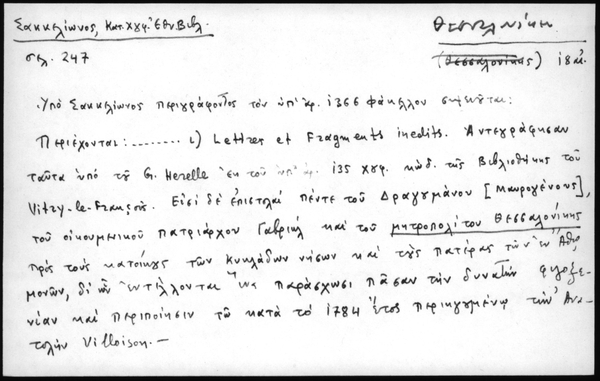 Σακκελίωνος, Κατ. Χγφ. Ἐθν. Βιβλ.
Θεσσαλονίκη
σελ. 247
(Θεσσαλονίκης) 18 αἰ.
Ὑπὸ Σακκελίωνος περιγράφοντος τὸν ὑπ' ἀρ. 1366 φάκελλον σημειοῦται:
Περιέχονται: ........ 1) Lettres et Fragments inedits. Ἀντεγράφησαν
ταῦτα ὑπὸ τοῦ G. Herelle ἐκ τοῦ ὑπ' ἀρ. 135 χγφ. κώδ. τῆς Βιβλιοθήκης τοῦ
Vitry-le-François. Εἰσὶ δὲ ἐπιστολαὶ πέντε τοῦ Δραγουμάνου [Μαυρογένους],
τοῦ οἰκουμενικοῦ πατριάρχου Γαβριὴλ καὶ τοῦ μητροπολίτου Θεσσαλονίκης
πρὸς τοὺς κατοίκους τῶν Κυκλάδων νήσων καὶ τοὺς πατέρας τῶν ἐν Ἄθῳ
μονῶν, δι' ὧν ἐντέλλονται ἵνα παράσχωσι πᾶσαν τὴν δυνατὴν φιλοξε-
νίαν καὶ περιποίησιν τῷ κατὰ τὸ 1784 ἔτος περιηγουμένῳ τὴν Ἀνα-
τολὴν Villoison.-